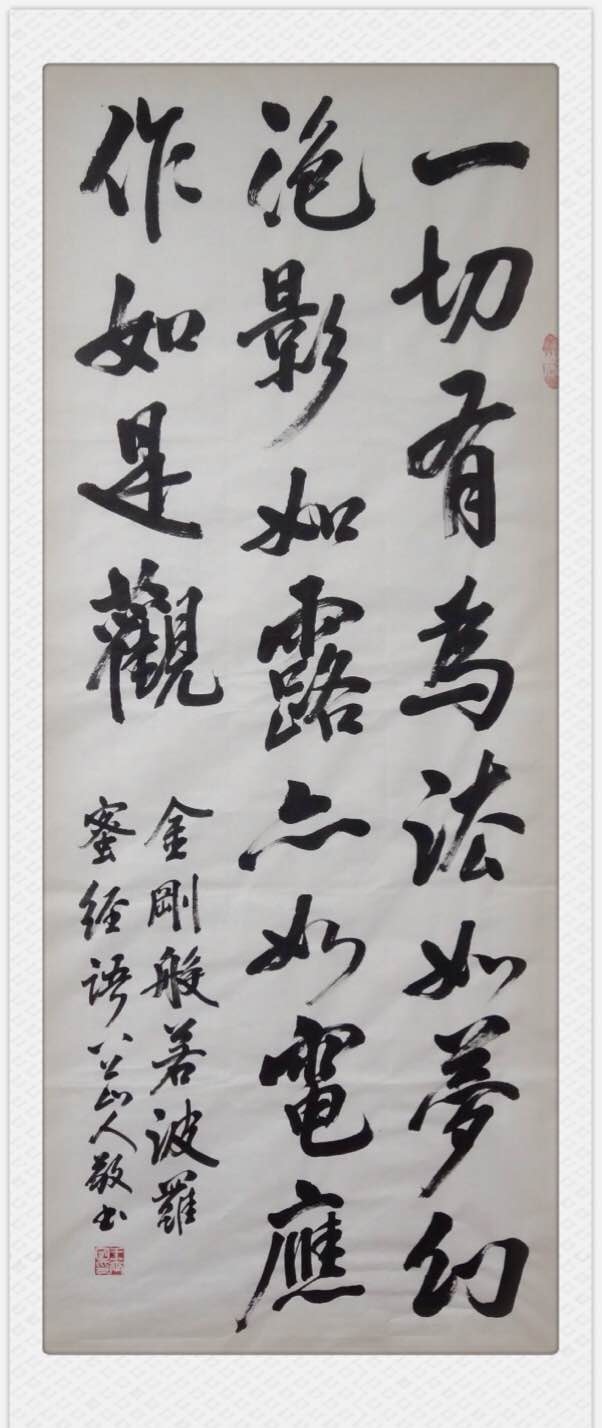 一切有為法如夢幻
泡影如露亦如電應
作如是觀
金剛般若波羅
蜜经語八公山人敬书